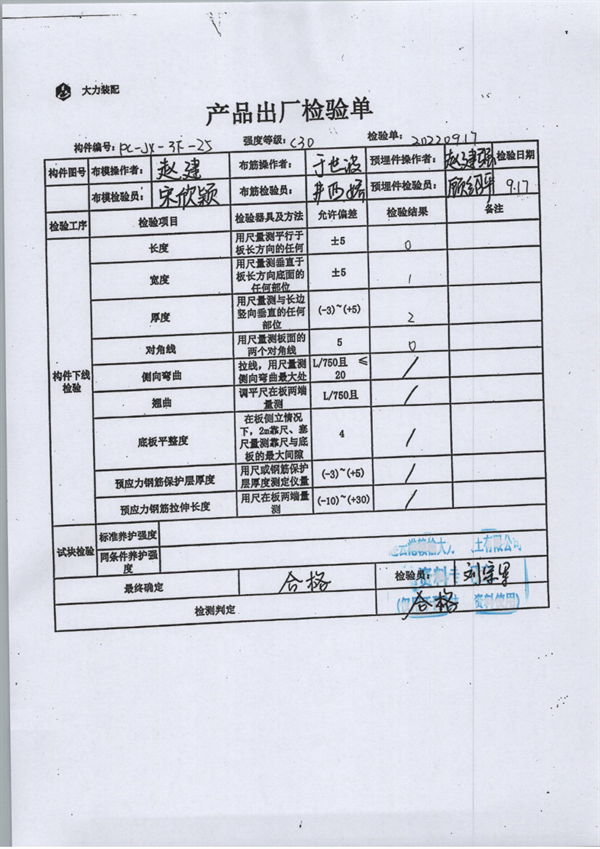 大力装配
产品出厂检验单
构件编号: PC-JX-3F-25 强度等级: C30 检验单: 20220917
构件图号 布模操作者: 赵建 布筋操作者: 于世波 预埋件操作者: 赵建强 检验日期
布模检验员: 宋欣颖 布筋检验员: 预埋件检验员: 9.17
检验工序 检验项目 检验器具及方法 允许偏差 检验结果 备注
构件下线检验
长度 用尺量测平行于板长方向的任何 ±5 0
宽度 用尺量测垂直于板长方向底面的任何部位 ±5 1
厚度 用尺量测与长边竖向垂直的任何部位 (-3)~(+5) 2
对角线 用尺量测板面的两个对角线 5 0
侧向弯曲 拉线,用尺量测侧向弯曲最大处 L/750且 ≤20 /
翘曲 调平尺在板两端量测 L/750且 /
底板平整度 在板侧立情况下,2m靠尺、塞尺量测靠尺与底板的最大间隙 4 /
预应力钢筋保护层厚度 用尺或钢筋保护层厚度测定仪量 (-3)~(+5) /
预应力钢筋拉伸长度 用尺在板两端量测 (-10)~(+30) /
试块检验 标准养护强度
同条件养护强度
土有限公司
最终确定 合格 检验员:
资料专
检测判定 合格
资料使用)